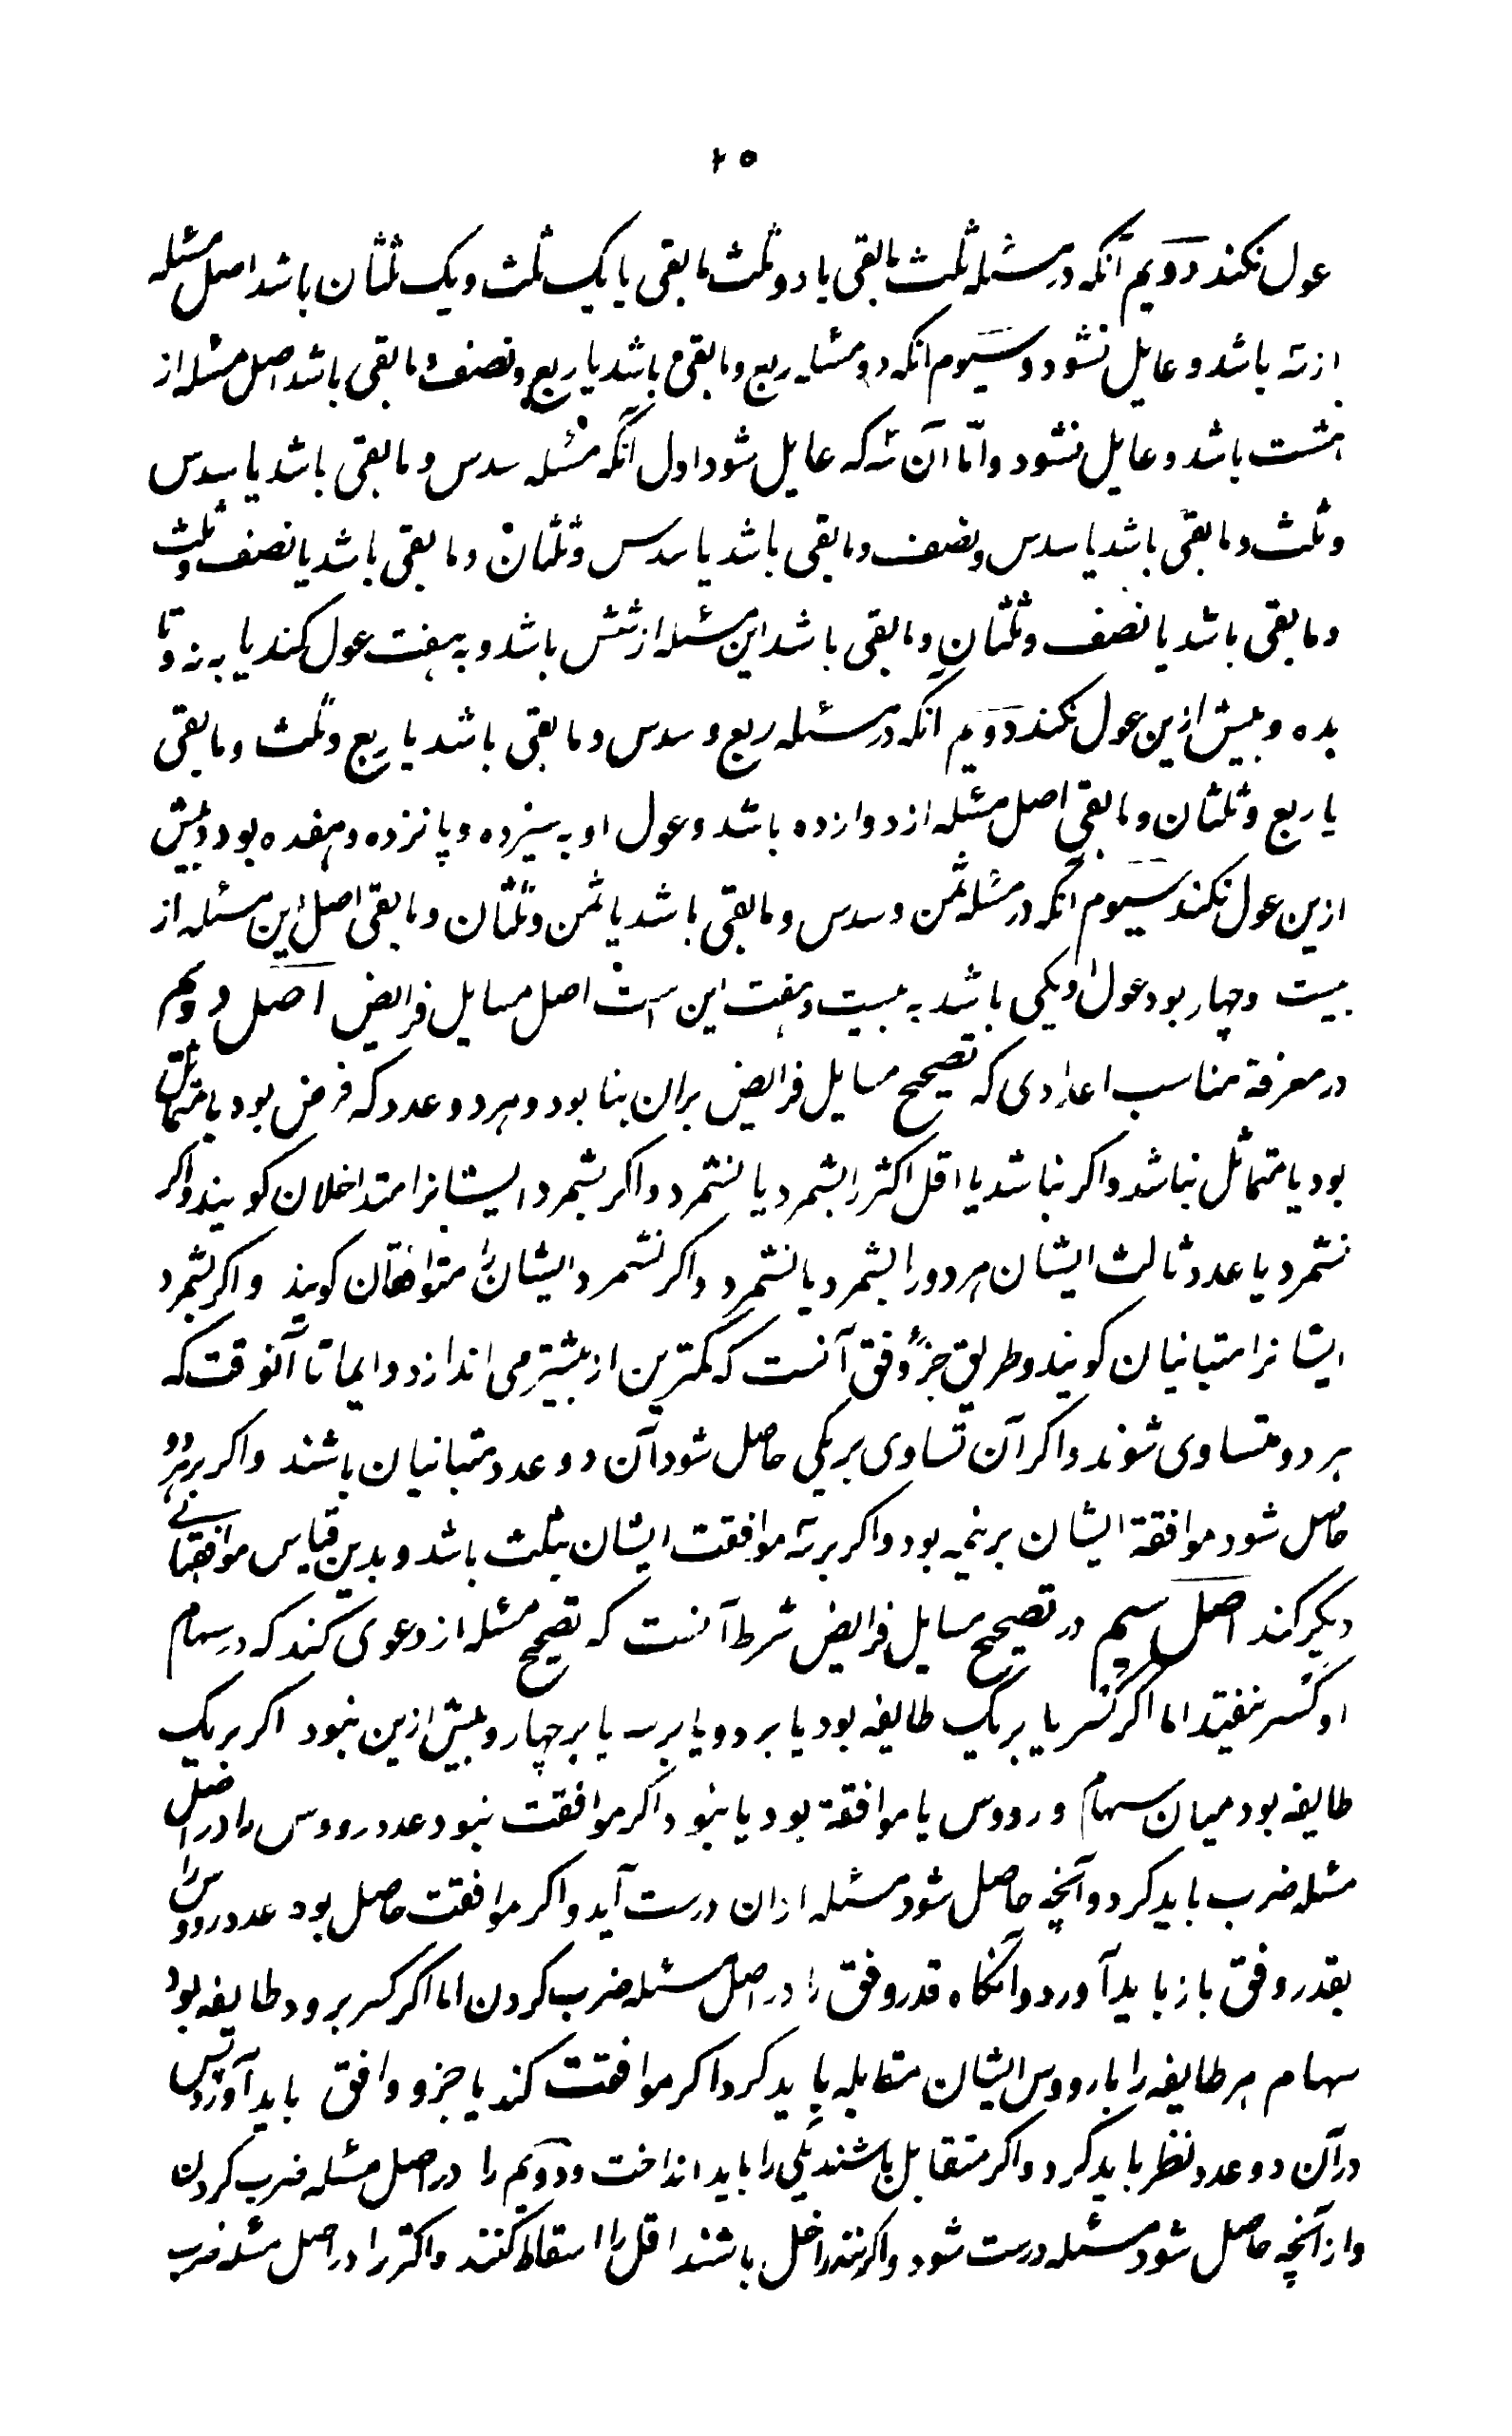 ٢٥
عول نکند دویم آنکه در مسئله ثلث مابقی یا دو ثلث مابقی یا یک ثلث و یک ثلثان باشد اصل مسئله
از سه باشد و عایل نشود و سیوم انکه در مسئله ربع و مابقی باشد یا ربع و نصف و مابقی باشد اصل مسئله از
هشت باشد و عایل نشود و امّا آن سه که عایل شود اول آنکه مسئله سدس و مابقی باشد یا سدس
و ثلث و مابقی باشد یا سدس و نصف و مابقی باشد یا سدس و ثلثان و مابقی باشد یا نصف و ثلث
و مابقی باشد یا نصف و ثلثان و مابقی باشد این مسئله از شش باشد و به هفت عول کند یا به نه و تا
بده و بیش ازین عول نکند دویم انکه در مسئله ربع و سدس و مابقی باشد یا ربع و ثلث و مابقی
یا ربع و ثلثان و مابقی اصل مسئله از دوازده باشد و عول او به سیزده و پانزده و هفده بود و بیش
ازین عول نکند سیوم آنکه در مسئله ثمن و سدس و مابقی باشد یا ثمن و ثلثان و مابقی اصل این مسئله از
بیست و چهار بود و عول او یکی باشد به بیست و هفت این است اصل مسایل فرایض اصل دویم
در معرفة مناسب اعدادی که تصحیح مسایل فرایض بران بنا بود و هر دو عدد که فرض بود یا متماثل
بود یا متماثل نباشد و اکر نباشد یا اقل اکثر را بشمرد یا نشمرد و اکر بشمرد ایشانرا متداخلان کویند و اکر
نشمرد یا عدد ثالث ایشان هر دو را بشمرد یا نشمرد و اکر نشمرد ایشان را متوافقان کویند و اکر بشمرد
ایشانرا متبانیان کویند و طریق جزؤ وفق آنست که کمترین از بیشتر می اندازد دایما تا آنوقت که
هر دو متساوی شوند و اکر آن تساوی بر یکی حاصل شود آن دو عدد متبانیان باشند و اکر بر هر دو
حاصل شود موافقة ایشان بر نیمه بود و اکر بر سه موافقت ایشان بثلث باشد و بدین قیاس موافقتهائے
دیکر کند اصل سیم در تصحیح مسایل فرایض شرط آنست که تصحیح مسئله از دعوی کند که در سهام
او کسر نیفتد اما اکر کسر یا بر یک طایفه بود یا بر دو یا بر سه یا بر چهار و بیش ازین نبود اکر بر یک
طایفه بود میان سهام و رووس یا موافقة بود یا نبود اکر موافقت نبود عدد رووس را در اصل
مسئله ضرب باید کرد و آنچه حاصل شود مسئله ازان درست آید و اکر موافقت حاصل بود عدد رووس را
بقدر وفق باز باید آورد و انکاه قدر وفق را در اصل مسئله ضرب کردن اما اکر کسر بر دو طایفه بود
سهام هر طایفه را با رووس ایشان مقابله باید کرد اکر موافقت کند یا جزو وافق باید آورد پس
در آن دو عدد نظر باید کرد و اکر متقابل باشند یکی را باید انداخت و دویم را در اصل مسئله ضرب کردن
و از آنچه حاصل شود مسئله درست شود و اکر متداخل باشند اقل را اسقاط کنند و اکثر را در اصل مسئله ضرب